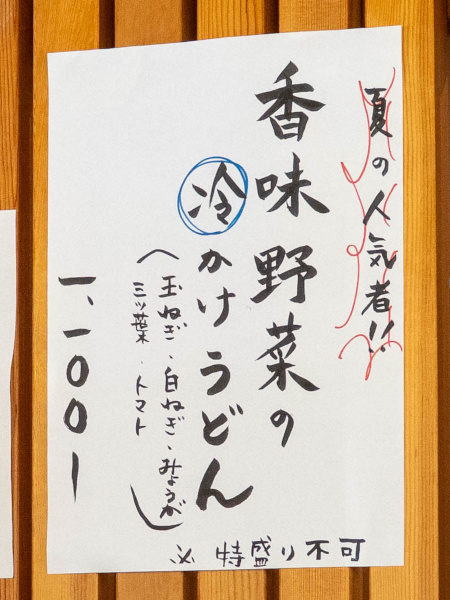 夏の人気者!!
香味野菜の
冷かけうどん
(玉ねぎ、白ねぎ、みょうが
三ッ葉、トマト)
一、一〇〇ー
※ 特盛り不可